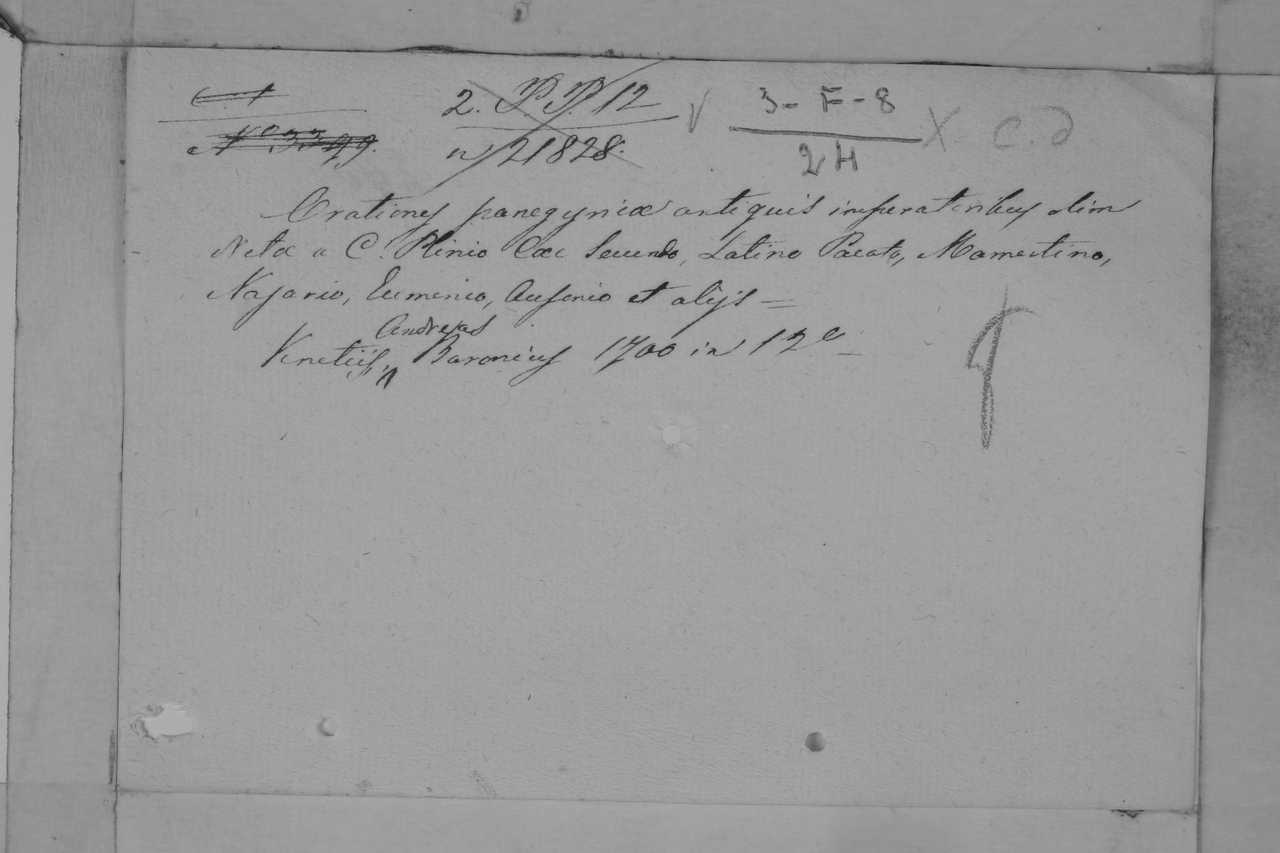 Nº 3399.
2. P. P. 12
n 21828.
√ 3-F-8
24
X C.D
Orationes panegyricæ antiquis imperatoribus olim
dictæ a C. Plinio Cæc Secundo, Latino Pacato, Mamertino,
Nazario, Eumenio, Ausonio et alijs =
Venetiis, Andreas Baronius 1700 in 12º